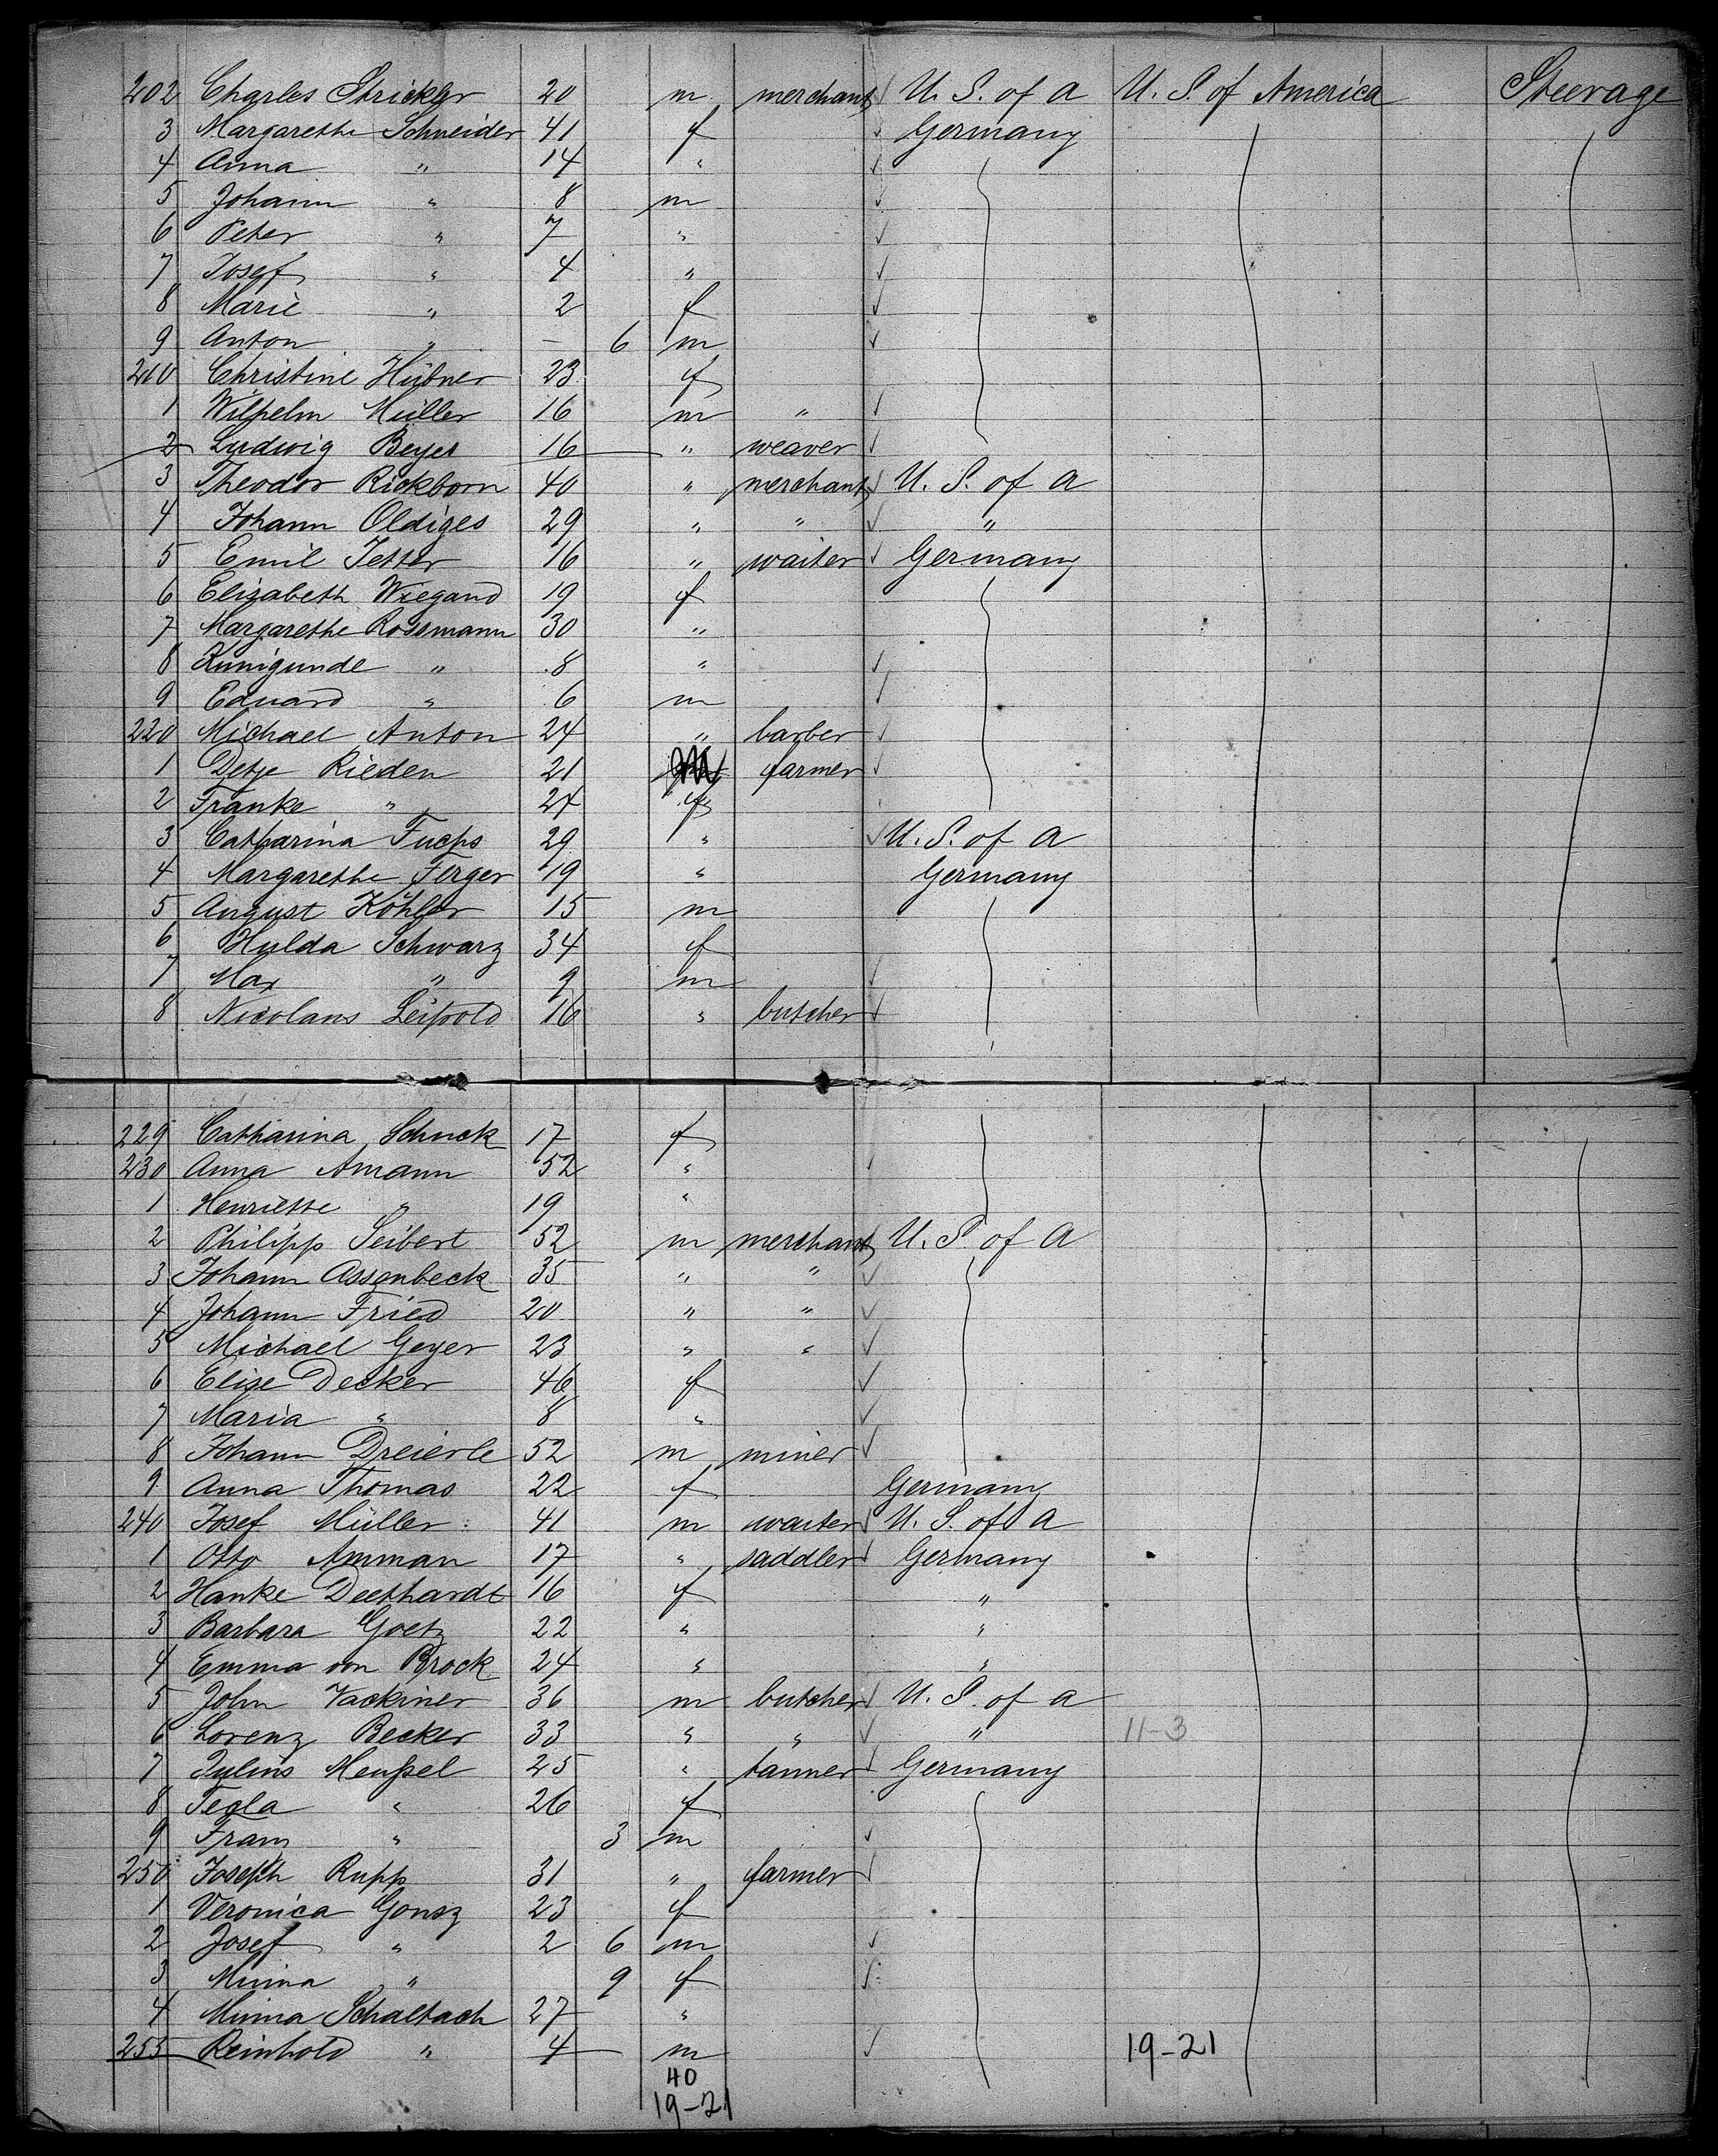 202 Charles Strickler 20 m merchant ✓ U. S. of A U. S. of America Steerage
3 Margarethe Schneider 41 f ✓ Germany
4 Anna " 14 " ✓
5 Johann " 8 m ✓
6 Peter " 7 " ✓
7 Josef " 4 " ✓
8 Marie " 2 f ✓
9 Anton " — 6 m ✓
210 Christine Hübner 23 f
1 Wilhelm Müller 16 m " ✓
2 Ludwig Beyer 16 " weaver ✓
3 Theodor Rickborn 40 " merchant ✓ U. S. of A
4 Johann Oldiges 29 " " ✓ "
5 Emil Jetter 16 " waiter ✓ Germany
6 Elizabeth Wiegand 19 f
7 Margarethe Rossmann 30 "
8 Kunigunde " 8 " ✓
9 Eduard " 6 m ✓
220 Michael Anton 24 " barber ✓
1 Detje Rieden 21 M farmer ✓
2 Franke " 24 f
3 Catharina Fuchs 29 " ✓ U. S. of A
4 Margarethe Ferger 19 " Germany
5 August Köhler 15 m
6 Hulda Schwarz 34 f
7 Max " 9 m ✓
8 Nicolaus Leipold 16 " butcher ✓
229 Catharina Schuck 17 f
230 Anna Amann 52 " ✓
1 Henriette " 19 "
2 Philipp Seibert 52 m merchant ✓ U. S. of A
3 Johann Assenbeck 35 " " ✓
4 Johann Fried 20 " " ✓
5 Michael Geyer 23 " " ✓
6 Elise Decker 46 f ✓
7 Maria " 8 " ✓
8 Johann Dreierle 52 m miner ✓
9 Anna Thomas 22 f Germany
240 Josef Müller 41 m waiter ✓ U. S. of A
1 Otto Amman 17 " saddler ✓ Germany
2 Hanke Deethardt 16 f "
3 Barbara Goetz 22 " "
4 Emma von Brock 24 " "
5 John Vackiner 36 m butcher ✓ U. S. of A
6 Lorenz Becker 33 " " ✓ " 11-3
7 Julius Meußel 25 " tanner ✓ Germany
8 Tegla " 26 f
9 Franz " 3 m ✓
250 Joseph Rupp 31 " farmer ✓
1 Veronica Gonsz 23 f
2 Josef " 2 6 m ✓
3 Minna " 9 f ✓
4 Minna Schaltach 27 "
255 Reinhold " 4 m ✓ 19-21
40
19-21